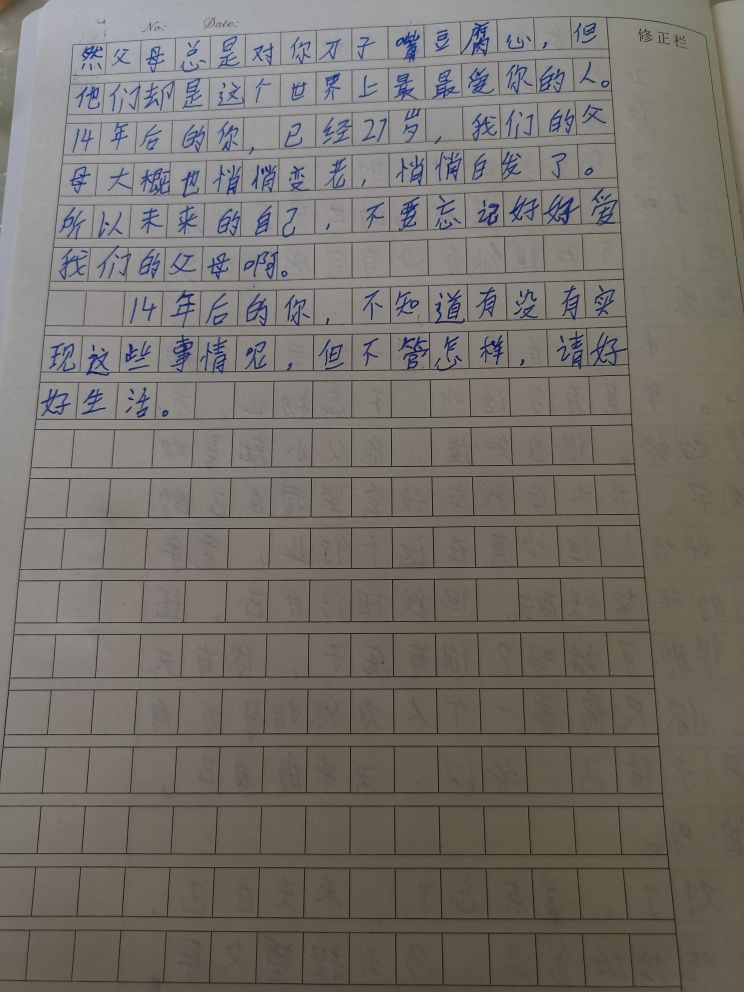 No: Date:
修正栏
然父母总是对你刀子嘴豆腐心，但
他们却是这个世界上最最爱你的人。
14年后的你，已经27岁，我们的父
母大概也悄悄变老，悄悄白发了。
所以未来的自己，不要忘记好好爱
我们的父母啊。
14年后的你，不知道有没有实
现这些事情呢，但不管怎样，请好
好生活。